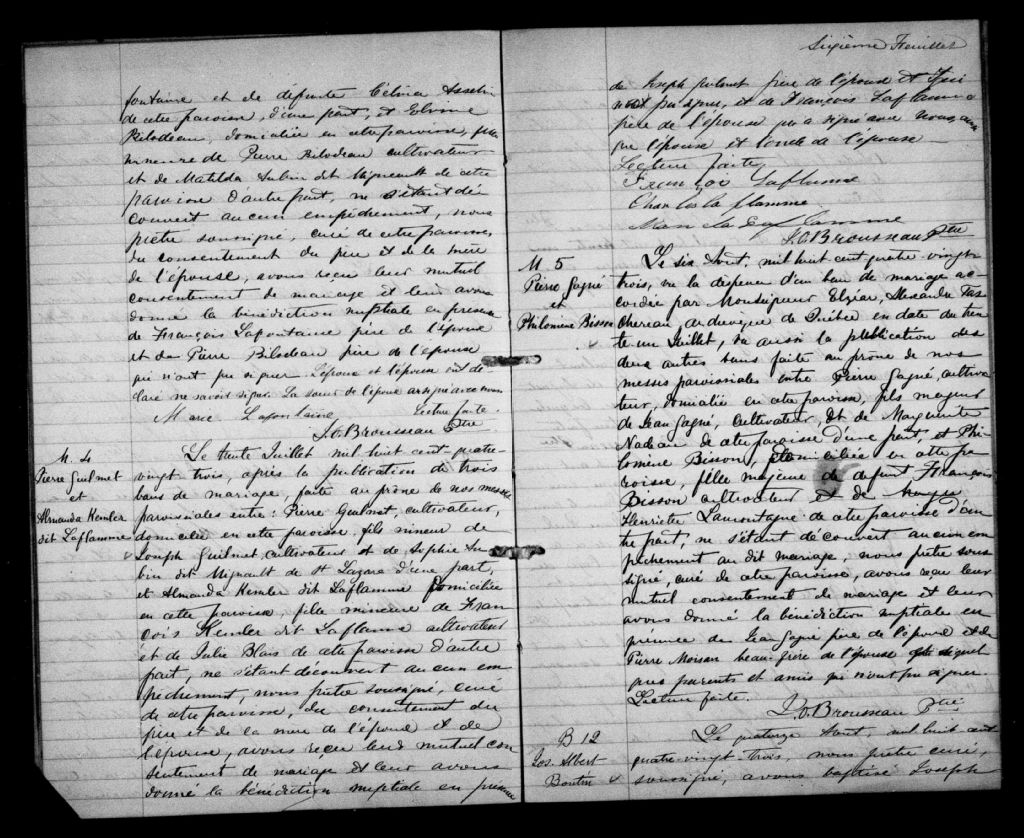 fontaine et de défunte Célina Asselin
de cette paroisse, d'une part, et
Bilodeau, domiciliée en cette paroisse, fille
mineure de Pierre Bilodeau cultivateur
et de Matilda Aubin dit Migneault de cette
paroisse d'autre part, ne s'étant dé
couvert aucun empêchement, nous
prêtre soussigné, curé de cette paroisse,
du consentement du père et de la mère
de l'épouse, avons reçu leur mutuel
consentement de mariage et leur avons
donné la bénédiction nuptiale en présence
de François Lafontaine père de l'époux
et de Pierre Bilodeau père de l'épouse
qui n'ont pu signer. L'époux et l'épouse ont dé
claré ne savoir signer. La soeur de l'époux a signé avec nous
Marie Lafontaine, Lecture faite.
J.O. Brousseau Ptre
M. 4
Pierre Guilmet
et
Almanda Kemler
dit Laflamme
Le trente Juillet mil huit cent quatre-
vingt trois, après la publication de trois
bans de mariage, faite au prône de nos messes
paroissiales entre: Pierre Guilmet, cultivateur,
domicilié en cette paroisse, fils mineur de
Joseph Guilmet, cultivateur et de Sophie Au
bin dit Mignault de St Lazare d'une part,
et Almanda Kemler dit Laflamme Domiciliée
en cette paroisse, fille mineure de Fran
çois Kemler dit Laflame cultivateur
et de Julie Blais de cette paroisse d'autre
part, ne s'étant découvert aucun em
pêchement, nous prêtre soussigné, curé
de cette paroisse, du consentement du
père et de la mère de l'époux et de
l'épouse, avons reçu leur mutuel con
sentement de mariage et leur avons
donné la bénédiction nuptiale en présence
Sixième Feuillet
de Joseph Guilmet père de l'époux et qui
n'ont pu signer, et de François Laflamme
père de l'épouse qui a signé avec nous, ainsi
que l'épouse et l'oncle de l'épouse
Lecture faite,
François Laflamme
Charles laflamme
Laflamme
J.O. Brousseau Ptre
M 5
Pierre Gagné
et
Philomène Bisson
Le six Aout, mil huit cent quatre-vingt
trois, vu la dispense d'un ban de mariage ac
cordée par Monseigneur Elzéar, Alexandre Tas
chereau archevêque de Québec en date du tren
te un Juillet, vu aussi la publication des
deux autres bans faite au prône de nos
messes paroissiales entre Pierre Gagné, cultiva
teur, domicilié en cette paroisse, fils majeur
de Jean Gagné, cultivateur, et de Marguerite
Nadeau de cette paroisse d'une part, et Phi
lomène Bisson, domiciliée en cette pa
roisse, fille majeure de défunt François
Bisson cultivateur et de
Henriette Lamontagne de cette paroisse d'au
tre part, ne s'étant découvert aucun em
pêchement au dit mariage, nous prêtre sous
signé, curé de cette paroisse, avons reçu leur
mutuel consentement de mariage et leur
avons donné la bénédiction nuptiale en
présence de Jean Gagné père de l'époux et de
Pierre Moisan beau-frère de l'épouse et de quel
ques parents et amis qui n'ont pu signer.
Lecture faite.
J.O. Brousseau Ptre
B 12
Jos. Albert
Boutin
Le quatorze Aout, mil huit cent
quatre-vingt-trois, nous prêtre curé,
soussigné, avons baptisé Joseph